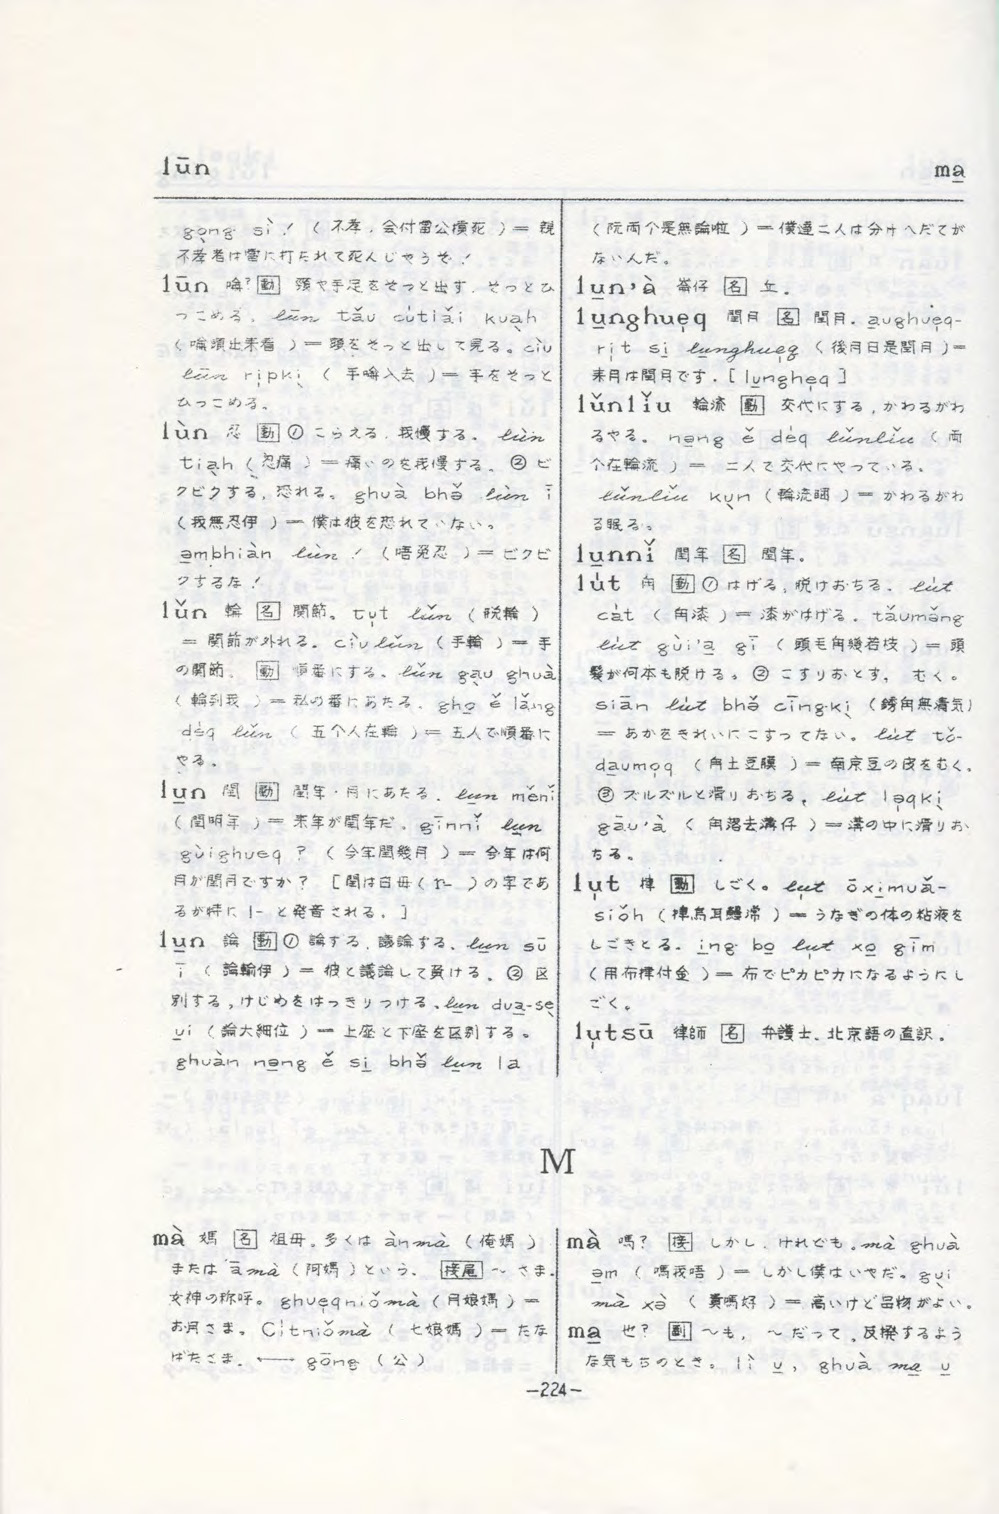 lūn
ma̠
gọng sì ! ( 不孝．会付雷公摃死 ) ＝ 親
不孝者は雷に打たれて死んじゃうぞ！
lūn 喻? 動 頭や手足をそっと出す．そっとひ
っこめる。lūn tǎu cu̍tlǎi kuạh
( 喻頭出来看 ) ＝ 頭をそっと出して見る。cìu
lūn ri̍pkị ( 手喻入去 ) ＝ 手をそっと
ひっこめる。
lùn 忍 動 ① こらえる．我慢する。 lùn
tiạh ( 忍痛 ) ＝ 痛いのを我慢する。 ② ビ
クビクする, 恐れる。 ghuà bhǒ lùn ī
( 我無忍伊 ) ＝ 僕は彼を恐れていない。
a̠mbhiàn lùn ! ( 唔免忍 ) ＝ ビクビ
クするな！
lǔn 輪 名 関節。 tụt lǔn ( 脱輪 )
＝ 関節が外れる。 cìu lǔn ( 手輪 ) ＝ 手
の関節。 動 順番にする。 lǔn gạu ghuà
( 輪到我 ) ＝ 私の番にあたる。 gho̠ ě lǎng
dẹq lǔn ( 五个人在輪 ) ＝ 五人で順番に
やる。
lu̠n 閏 動 閏年・月にあたる。 lu̠n měnǐ
( 閏明年 ) ＝ 来年が閏年だ。 gīnnǐ lu̠n
gùighue̍q ? ( 今年閏幾月 ) ＝ 今年は何
月が閏月ですか？ [ 閏は日母 ( r- ) の字であ
るが特に l- と発音される。]
lu̠n 論 動 ① 論する．議論する。 lu̠n sū
ī ( 論輸伊 ) ＝ 彼と議論して負ける。 ② 区
別する, けじめをはっきりつける。 lu̠n dua̠-sẹ
u̠i ( 論大細位 ) ＝ 上座と下座を区別する。
ghuàn nn̠g ě si̠ bhǒ lu̠n la
( 阮両个是無論啦 ) ＝ 僕達二人は分けへだてが
ないんだ。
lu̠n'à 崙仔 名 丘．
lu̠nghue̍q 閏月 名 閏月. a̠ughue̍q-
ri̍t si̠ lu̠nghue̍q ( 後月日是閏月 )＝
来月は閏月です．[ lu̠nghe̍q ]
lǔnlǐu 輪流 動 交代にする, かわるがわ
るやる。 nn̠g ě dẹq lǔnlǐu ( 両
个在輪流 ) ＝ 二人で交代にやっている。
lǔnlǐu kụn ( 輪流睏 ) ＝ かわるがわ
る眠る。
lu̠nnǐ 閏年 名 閏年。
lu̍t 甪 動 ① はげる, 脱けおちる。 lu̍t
ca̍t ( 甪漆 ) ＝ 漆がはげる。 tǎumǎng
lu̍t gùi'a̠ gī ( 頭毛甪幾若枝 ) ＝ 頭
髪が何本も脱ける。 ② こすりおとす， むく。
siān lu̍t bhǒ cīngkị ( 銹甪無清気)
＝ あかをきれいにこすってない。 lu̍t tǒ-
da̠umo̍q ( 甪土豆膜 ) ＝ 南京豆の皮をむく。
③ ズルズルと滑りおちる。 lu̍t la̍qkị
gāu'à ( 甪落去溝仔 ) ＝ 溝の中に滑りお
ちる。
lụt 捽 動 しごく。 lụt ōximuǎ-
siǒh ( 捽烏耳鰻潲 ) ＝ うなぎの体の粘液を
しごきとる。 i̠ng bọ lụt xọ gīm
( 用布捽付金 ) ＝ 布でピカピカになるようにし
ごく。
lu̍tsū 律師 名 弁護士．北京語の直訳．
M
mà 媽 名 祖母。多くは ànmà ( 俺媽 )
または āmà ( 阿媽 ) という。 接尾 〜さま.
女神の称呼。 ghue̍qniǒmà ( 月娘媽 ) ＝
お月さま。 Citniǒmà ( 七娘媽 ) ＝ たな
ばたさま。 ←→ gōng ( 公 )
mà 嗎? 接 しかし．けれども。mà ghuà
a̠m ( 嗎我唔 ) ＝ しかし僕はいやだ。gụi
mà xò ( 貴嗎好 ) ＝ 高いけど品物がよい。
ma̠ 也? 副 〜も, 〜だって．反撥するよう
な気もちのとき。 lì u̠, ghuà ma̠ u̠
－224－